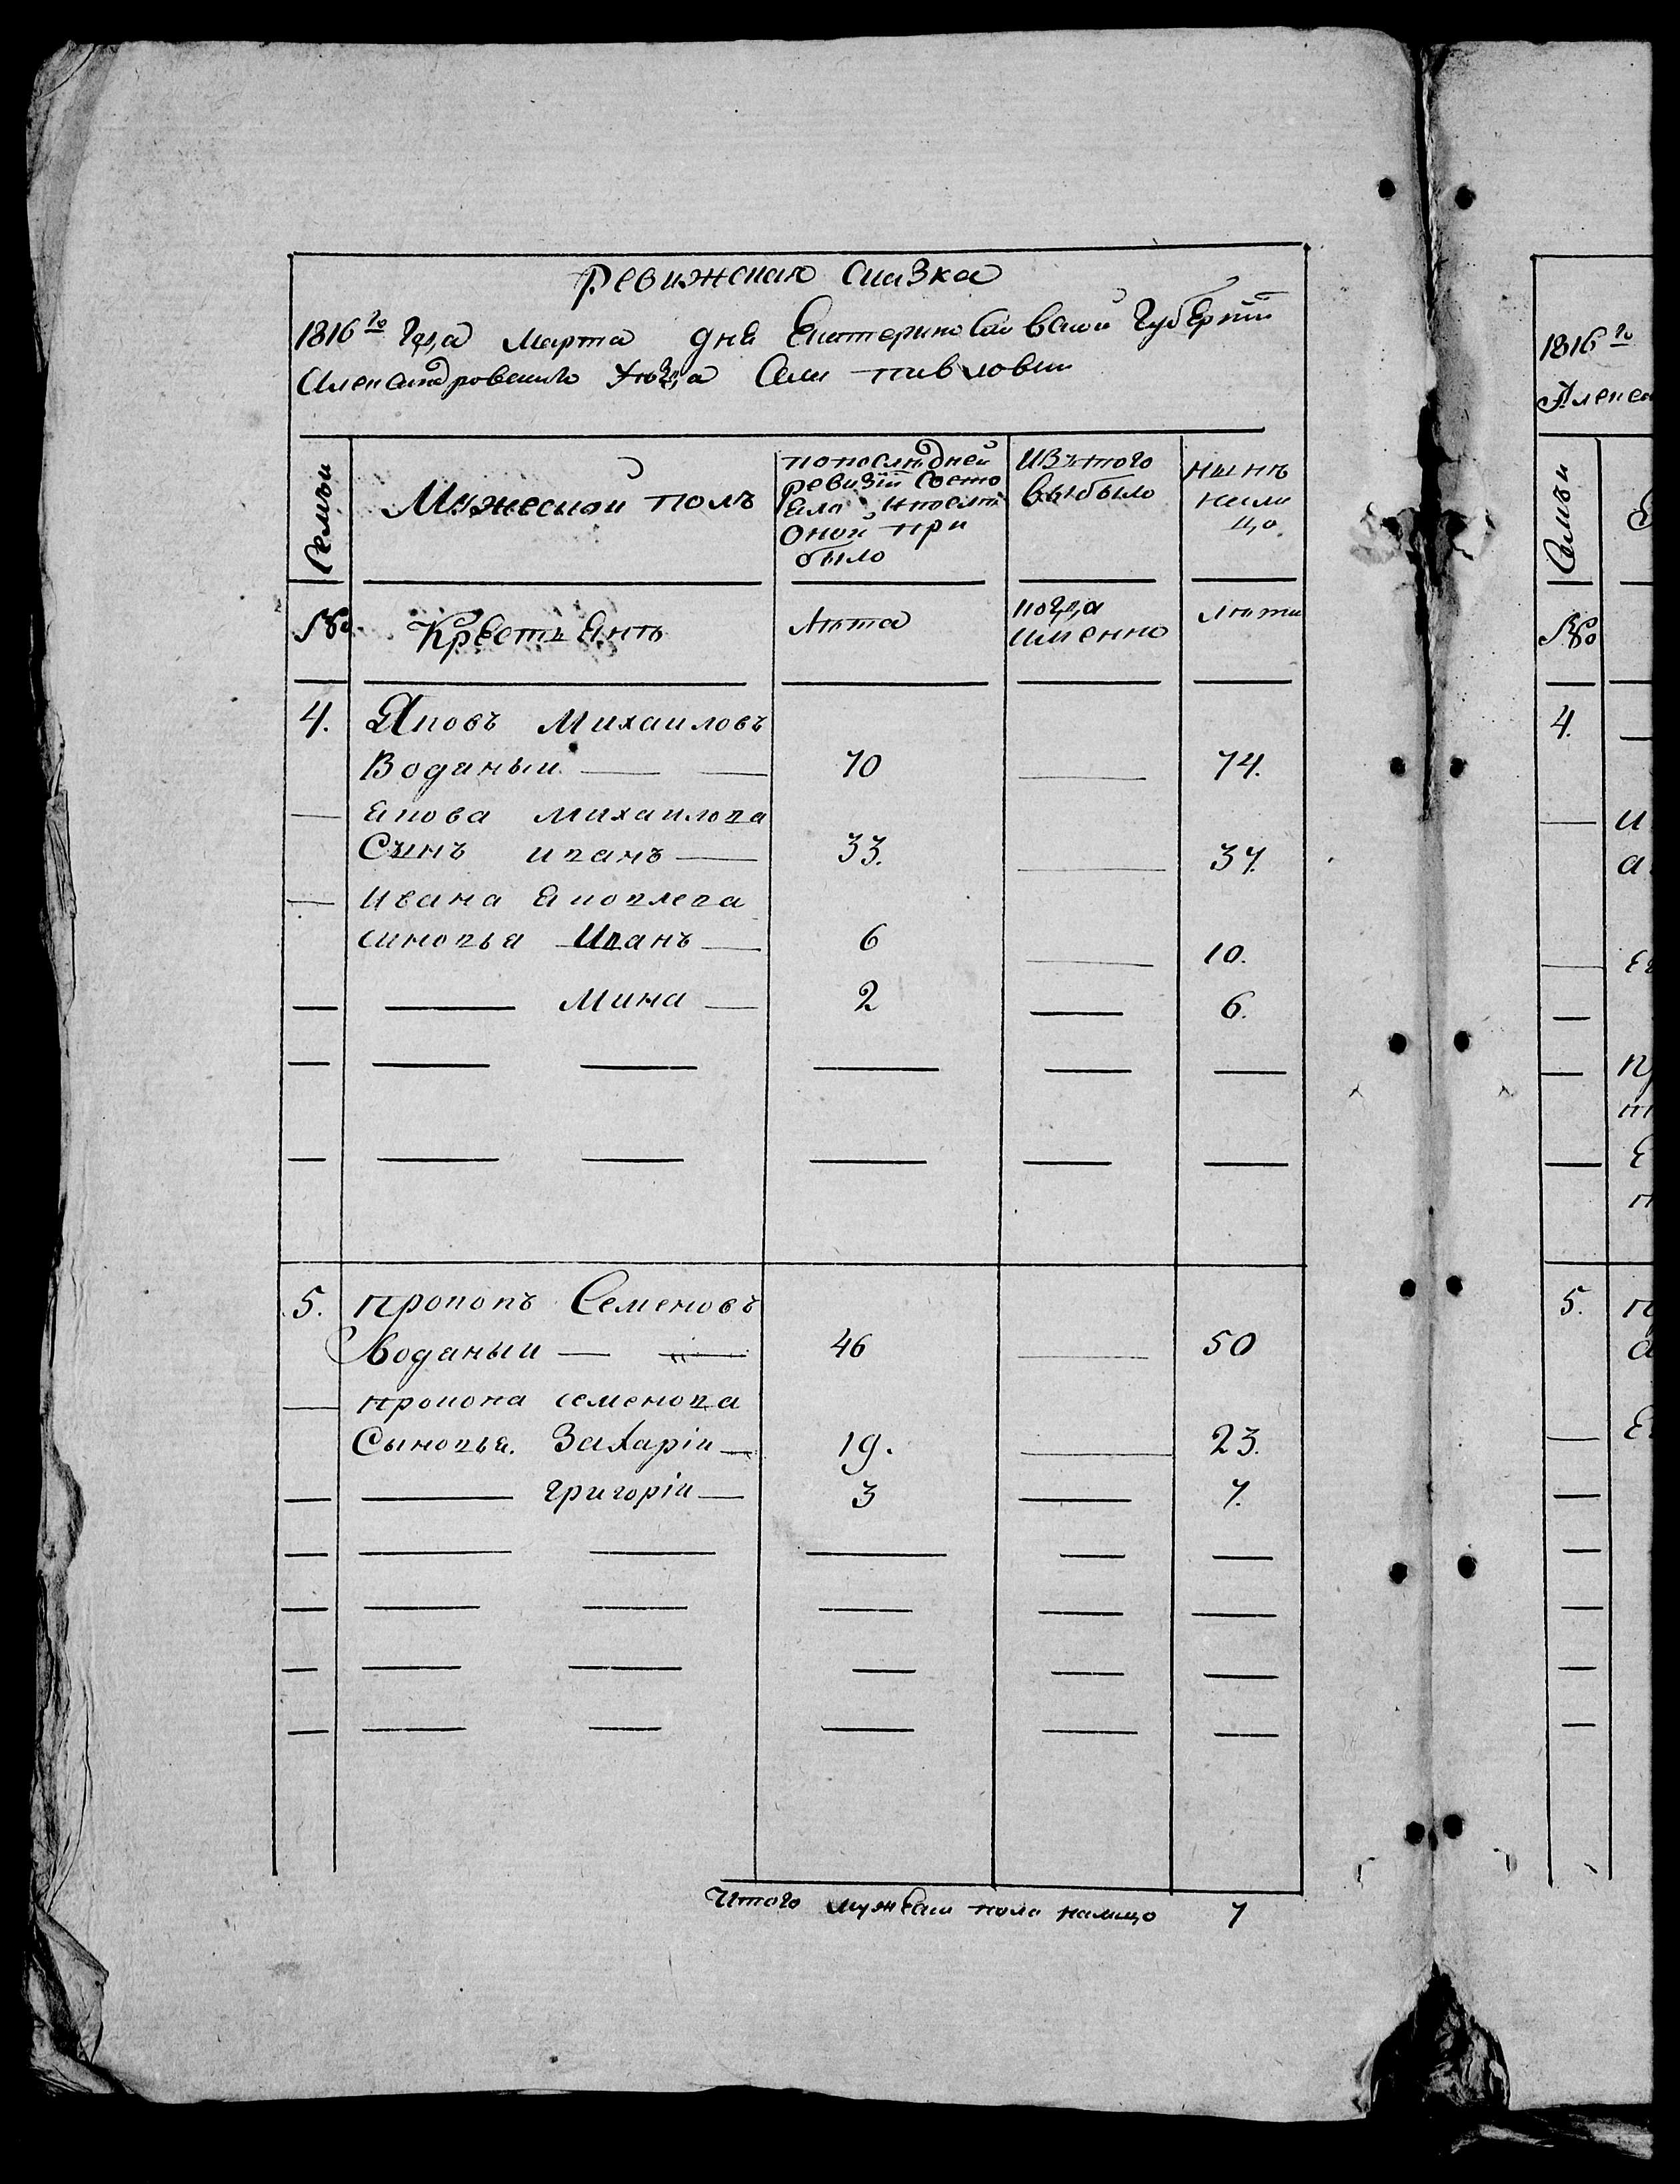 Ревижская Сказка
1816го Года Марта дня Екатеринославской Губернии
Александровскаго уѣзда Села павловки
Семьи
Мужескои полъ
попослѣдней ревизіи Состояло и послѣ Оной прибыло
Изътого выбыло
нынѣ налицо.
№
Крестьянъ
Лѣта
когда именно
лѣта
4. Яковъ Михаиловъ
Воданыи — — 70 — 74.
— якова михаилова
Сынъ иванъ — 33. — 37.
— Ивана яковлева
синовья Иванъ — 6 — 10.
— — Мина — 2 — 6.
— — — — — —
— — — — — —
5. прокопъ Семеновъ
Воданыи — — 46 — 50
— прокопа семенова
Сыновья. Захаріи — 19. — 23.
— — григоріи — 3 — 7.
— — — — — —
— — — — — —
— — — — — —
— — — — — —
Итого мужескаго пола налицо 7
1816го
Алекса
Семьи
№
4.
5.